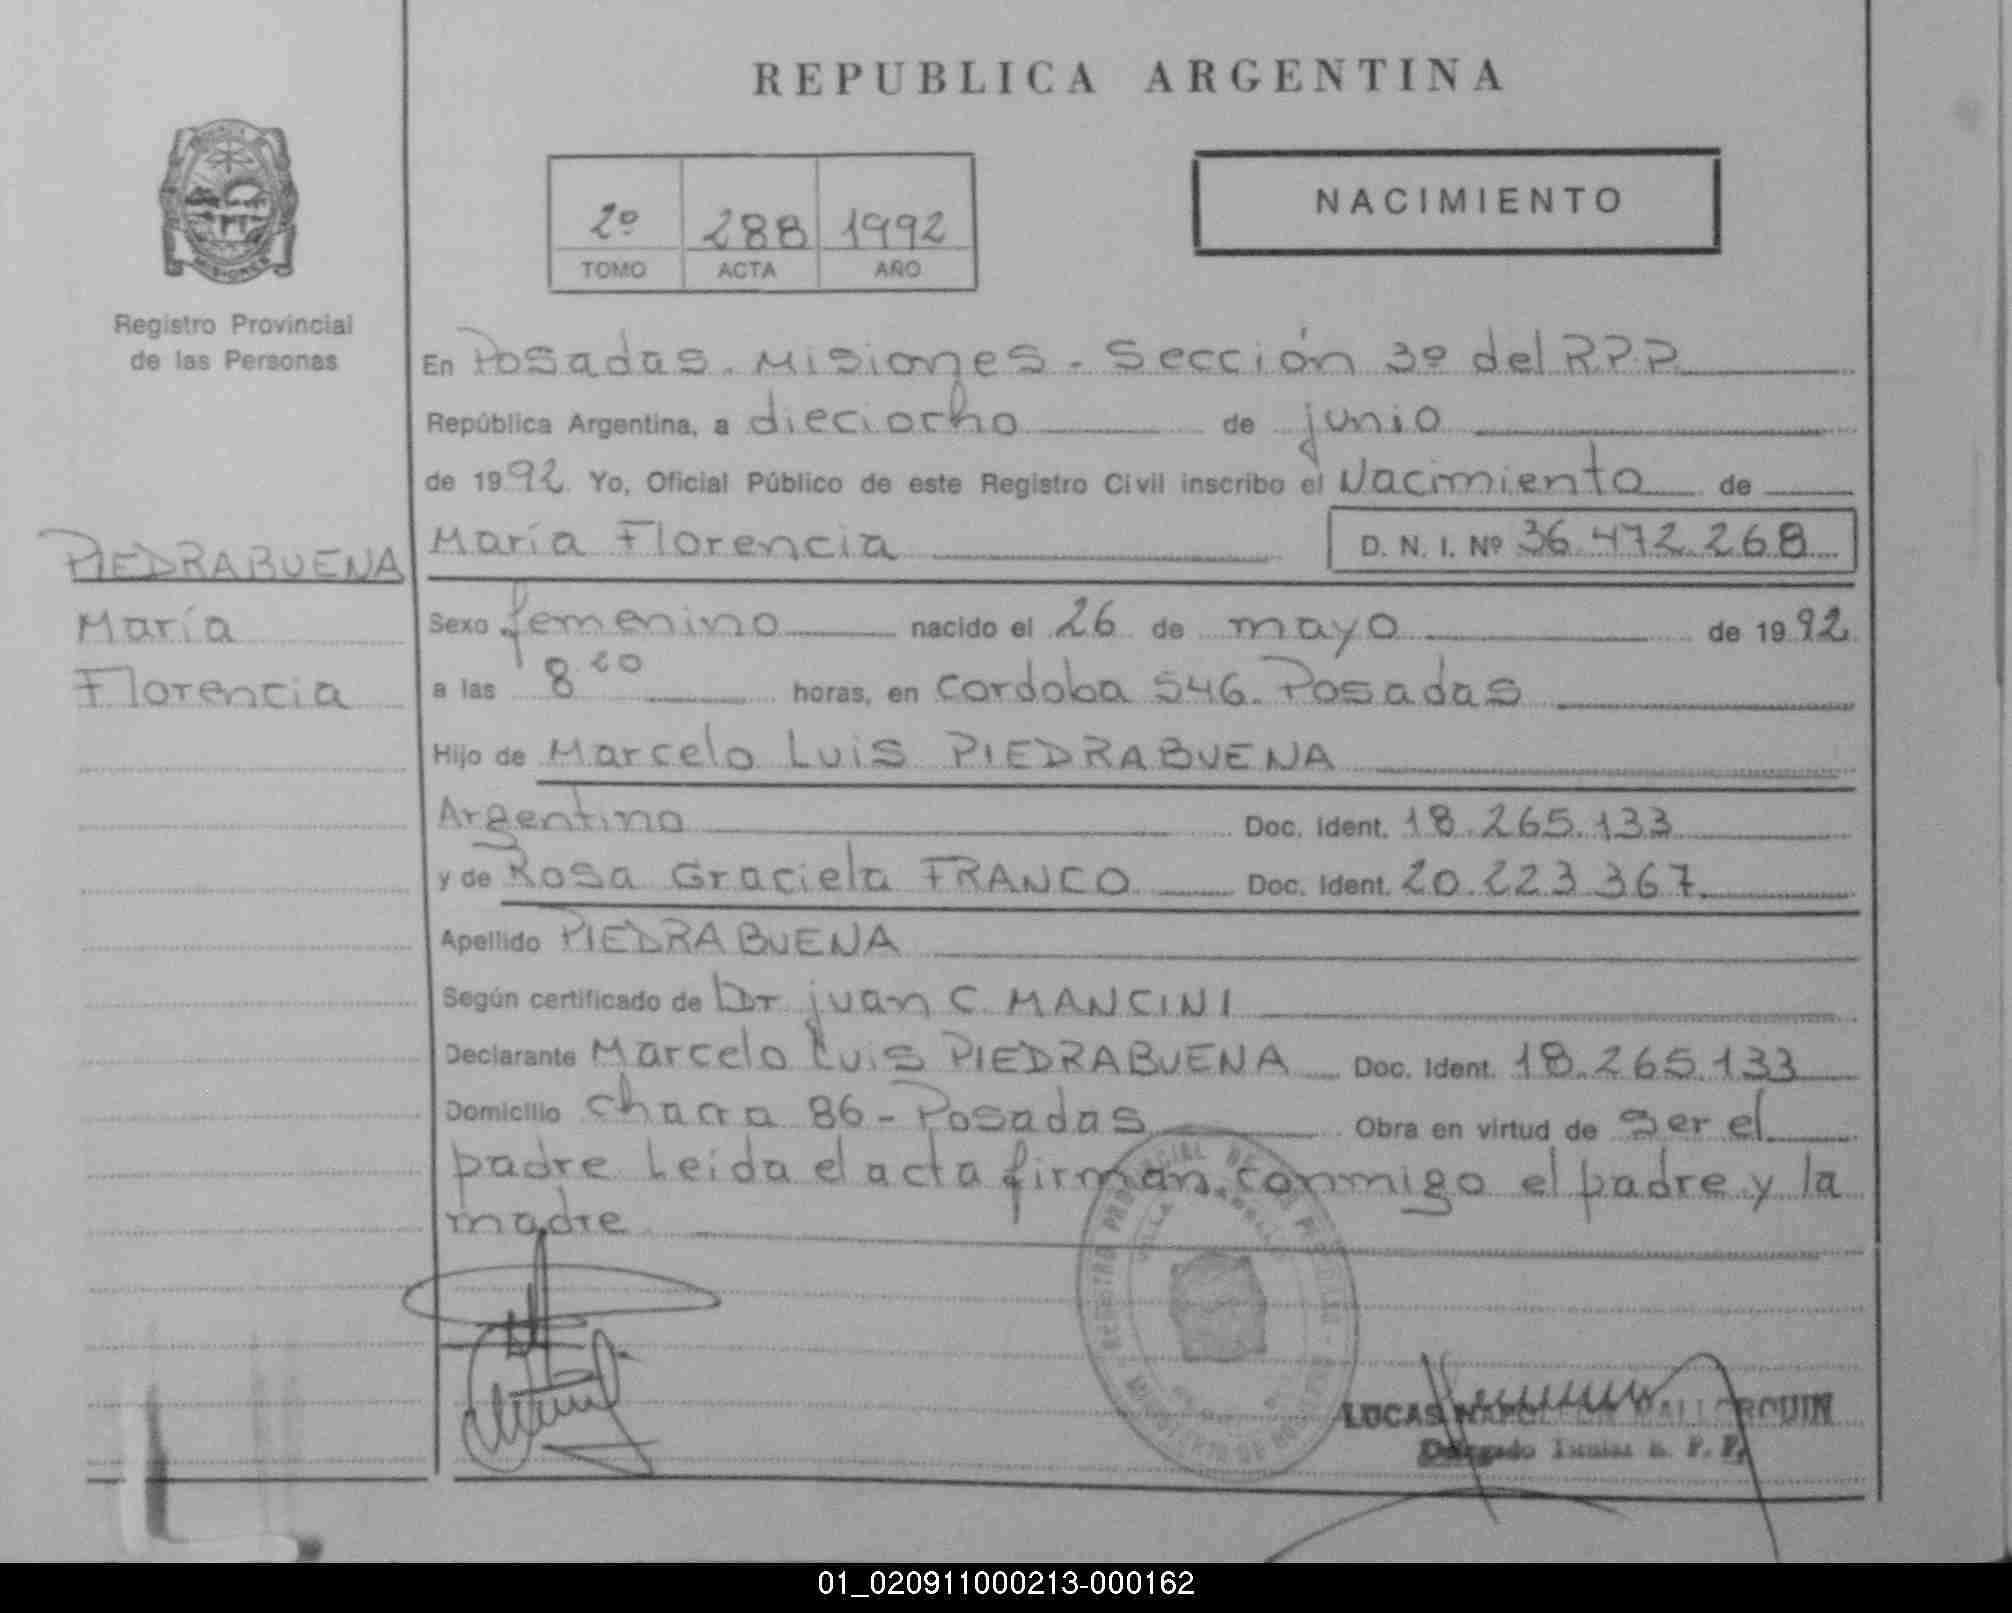 REPUBLICA ARGENTINA
NACIMIENTO
2º 288 1992
TOMO ACTA AÑO
MISIONES
Registro Provincial
de las Personas
PIEDRABUENA
María
Florencia
En Posadas. Misiones - Sección 3º del R.P.P.
República Argentina, a dieciocho de junio
de 1992 Yo, Oficial Público de este Registro Civil inscribo el Nacimiento de
María Florencia D. N. I. Nº 36.472.268
Sexo femenino nacido el 26 de mayo de 1992
a las 8 20 horas, en Cordoba 546. Posadas
Hijo de Marcelo Luis PIEDRABUENA
Argentino Doc. Ident. 18.265.133
y de Rosa Graciela FRANCO Doc. Ident. 20.223.367
Apellido PIEDRABUENA
Según certificado de Dr juan C. MANCINI
Declarante Marcelo Luis PIEDRABUENA Doc. Ident. 18.265.133
Domicilio Chacra 86 - Posadas Obra en virtud de ser el
padre Leída el acta firman conmigo el padre y la
madre
REGISTRO PROVINCIAL DE LAS PERSONAS
LUCAS
01_020911000213-000162